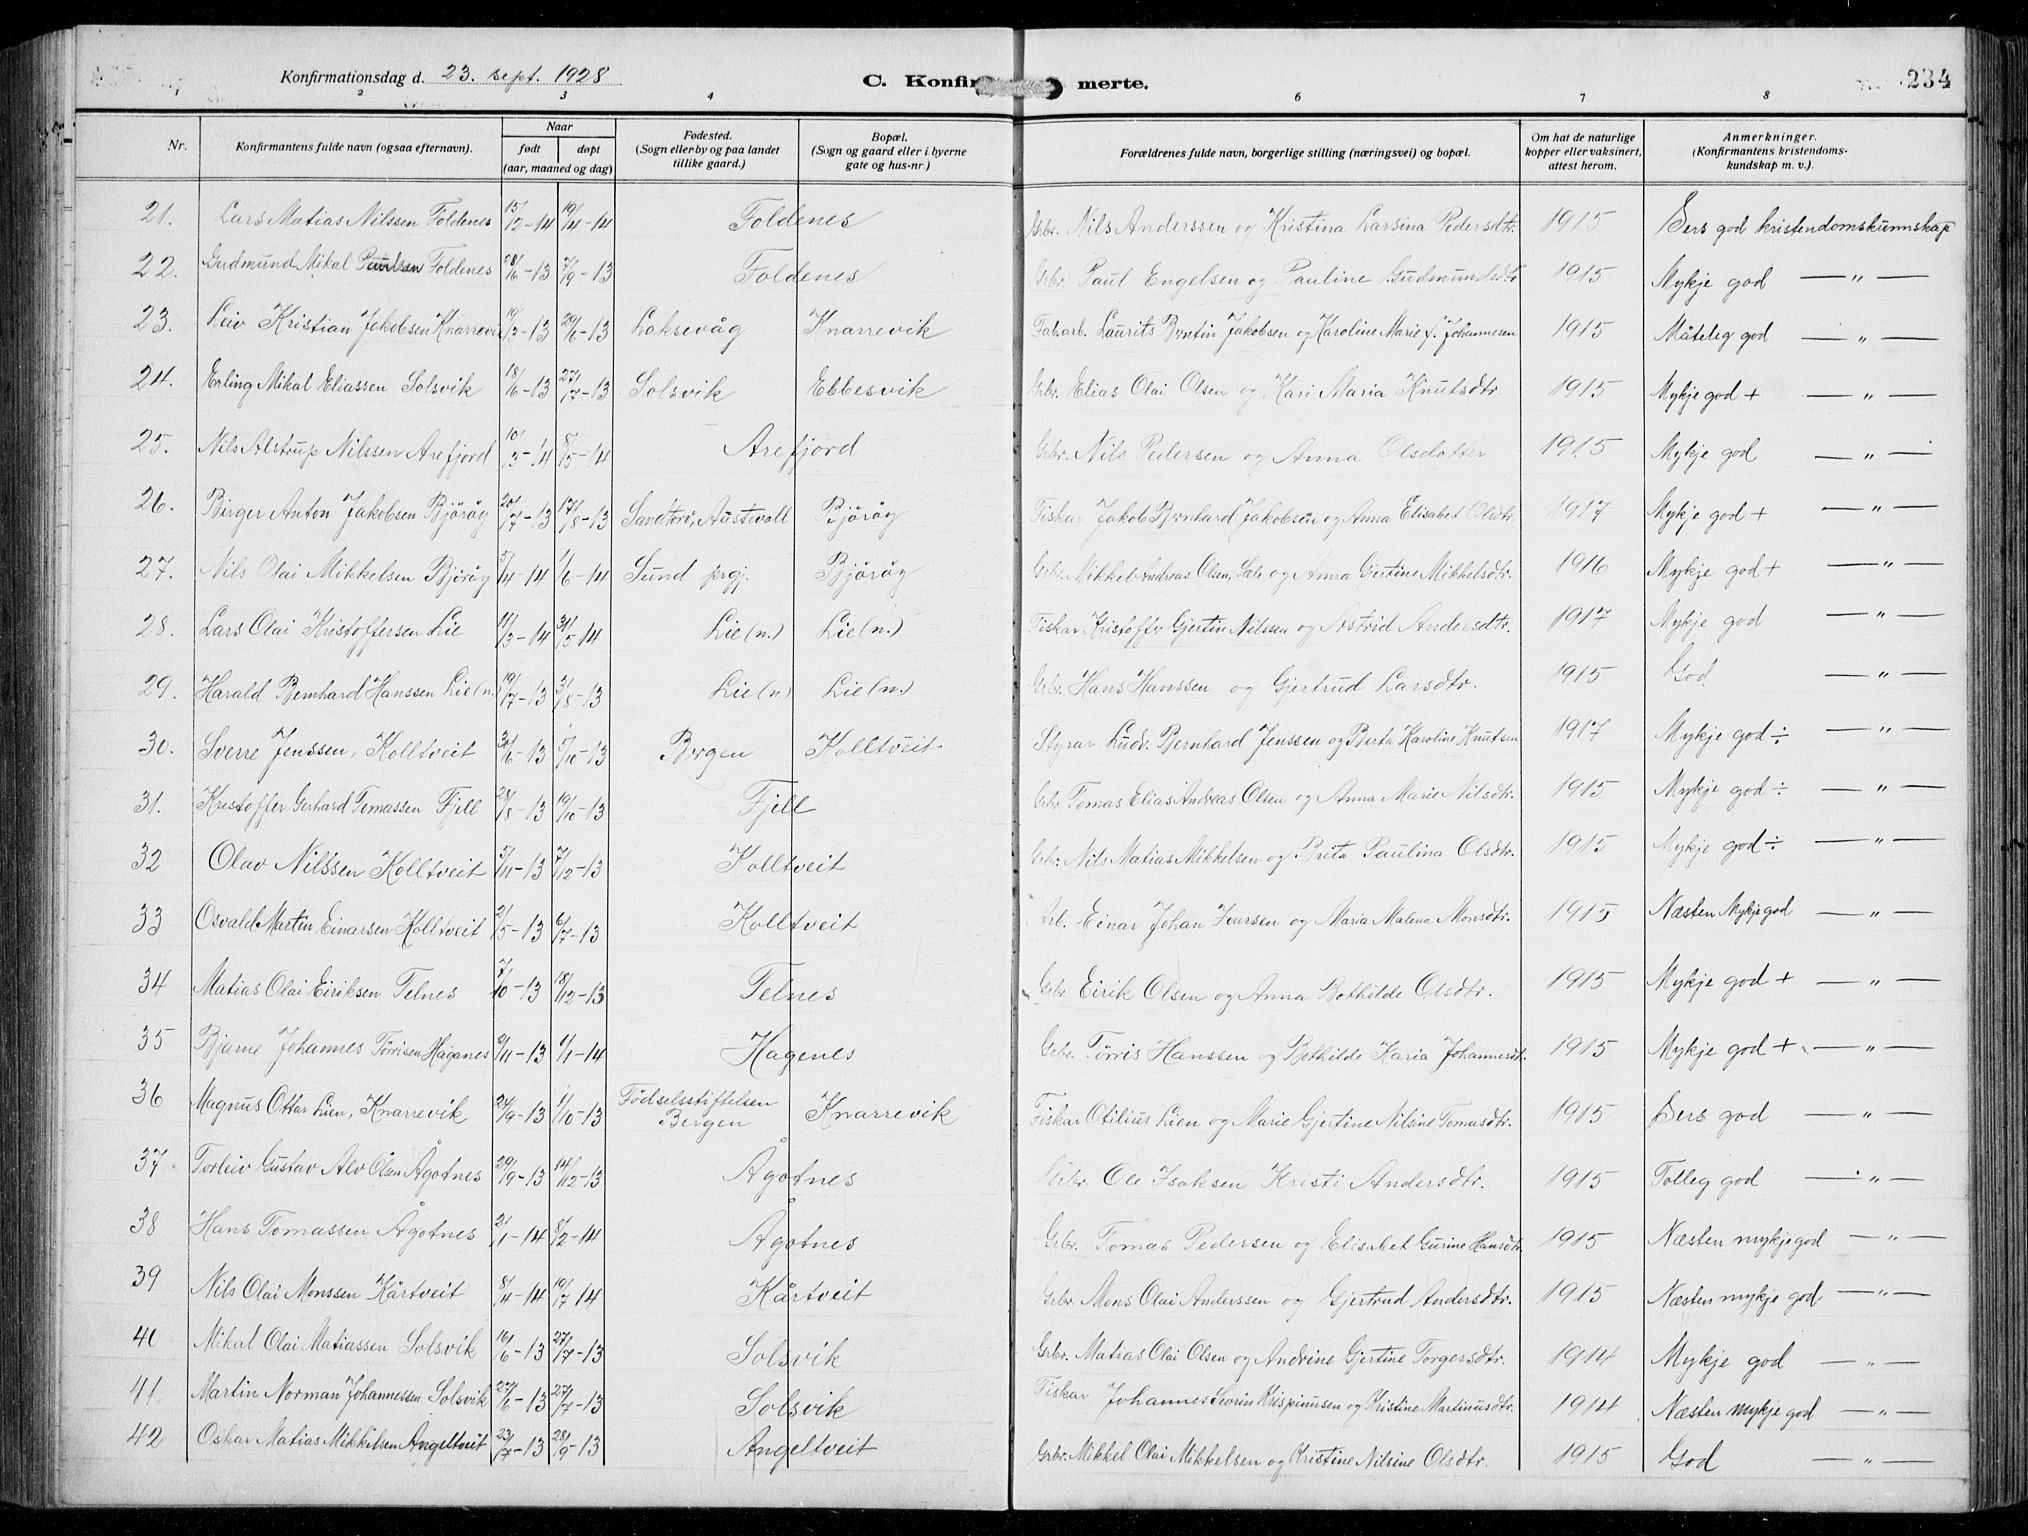 Konfirmationsdag d. 23. sept. 1928 C. Konfirmerte. 234
1 2 3 4 6 7 8
Nr. Konfirmantens fulde navn (ogsaa efternavn). Naar født døpt (aar, maaned og dag) Fødested. (Sogn eller by og paa landet tillike gaard.) Bopæl. (Sogn og gaard eller i byerne gate og hus-nr.) Forældrenes fulde navn, borgerlige stilling (næringsvei) og bopæl. Om hat de naturlige kopper eller vaksinert, attest herom. Anmerkninger. (Konfirmantens kristendomskundskap m. v.).
21. Lars Matias Nilssen Foldenes 15/2-14 19/4-14 Foldenes Grbr. Nils Anderssen og Kristina Larsina Pedersdtr. 1915 Sers god kristendomskunnskap
22. Gudmund Mikal Paulsen Foldenes 28/6-13 7/9-13 Foldenes Grbr. Paul Engelsen og Pauline Gudmundsdtr 1915 Mykje god — " —
23. Leiv Kristian Jakobsen Knarrevik 19/3-13 29/6-13 Laksevåg Knarrevik Fab.arb. Laurits Berntin Jakobsen og Karoline Marie f. Johannesen 1915 Måteleg god — " —
24. Erling Mikal Eliassen Solsvik 18/6-13 27/7-13 Solsvik Ebbesvik Grbr. Elias Olai Olsen og Kari Maria Knutsdtr. 1915 Mykje god + — " —
25. Nils Alstrup Nilssen Arefjord 10/3-14 8/5-14 Arefjord Grbr. Nils Pedersen og Anna Olsdotter 1915 Mykje god — " —
26. Birger Anton Jakobsen Bjørøy 20/7-13 17/8-13 Sandtorv, Austevoll Bjørøy Fiskar Jakob Bernhard Jakobsen og Anna Elisabet Olsdtr. 1917 Mykje god + — " —
27. Nils Olai Mikkelsen Bjørøy 5/4-14 1/6-14 Sund prgj. Bjørøy Grbr. Mikkel Andreas Olsen, og Anna Gjertine Mikkelsdtr. 1916 Mykje god + — " —
28. Lars Olai Kristoffersen Lie 11/3-14 31/5-14 Lie (n.) Lie (n.) Fiskar Kristoffer Gjertin Nilsen og Astrid Andersdtr. 1917 Mykje god — " —
29. Harald Bernhard Hanssen Lie (n.) 19/7-13 3/8-13 Lie (n.) Lie (n.) Grbr. Hans Hanssen og Gjertrud Larsdtr. 1915 God — " —
30. Sverre Jenssen, Kolltveit 30/6-13 5/10-13 Bergen Kolltveit Styrar Ludv. Bernhard Jenssen og Berta Karoline Knutsen 1917 Mykje god ÷ — " —
31. Kristoffer Gerhard Tomassen Fjell 28/8-13 19/10-13 Fjell Grbr. Tomas Elias Andreas Olsen og Anna Marie Nilsdtr. 1915 Mykje god ÷ — " —
32 Olav Nilssen Kolltveit 5/11-13 7/12-13 Kolltveit Grbr. Nils Matias Mikkelsen og Brita Paulina Olsdtr. 1915 Mykje god ÷ — " —
33 Osvald Martin Einarsen Kolltveit 2/5-13 6/7-13 Kolltveit Arb. Einar Johan Iversen og Maria Malena Monsdtr. 1915 Næsten Mykje god — " —
34 Matias Olai Eiriksen Telnes 7/10-13 18/12-13 Telnes Grbr. Eirik Olsen og Anna Bothilde Olsdtr. 1915 Mykje god + — " —
35 Bjarne Johannes Tørrisen Håganes 9/11-13 1/1-14 Hagenes Grbr. Tørris Hanssen og Bothilde Karia Johannesdt. 1915 Mykje god + — " —
36 Magnus Ottar Lien, Knarrevik 24/9-13 1/10-13 Fødselsstiftelsen Bergen Knarrevik Fiskar Otilius Lien og Marie Gjertine Nilsine Tomasdtr. 1915 Sers god — " —
37. Torleiv Gustav Alv Olsen Ågotnes 29/9-13 14/12-13 Ågotnes Grbr. Ole Isaksen Kristi Andersdtr. 1915 Tolleg god — " —
38 Hans Tomassen Ågotnes 2/1-14 8/2-14 Ågotnes Grbr. Tomas Pedersen og Elisabet Gurine Hansdtr. 1915 Næsten mykje god — " —
39 Nils Olai Monssen Kårtveit 8/4-14 19/7-14 Kårtveit Grbr. Mons Olai Anderssen og Gjertrud Andersdtr. 1915 Næsten mykje god — " —
40 Mikal Olai Matiassen Solsvik 16/6-13 27/7-13 Solsvik Grbr. Matias Olai Olsen og Andrine Gjertine Torgersdtr. 1914 Mykje god — " —
41. Martin Norman Johannessen Solsvik 27/6-13 27/7-13 Solsvik Fiskar Johannes Severin Krispinusen og Kristine Martinusdtr. 1914 Næsten mykje god — " —
42 Oskar Matias Mikkelsen Angeltveit 23/7-13 28/9-13 Angeltveit Grbr. Mikkel Olai Mikkelsen og Kristine Nilsine Olsdtr. 1915 God — " —